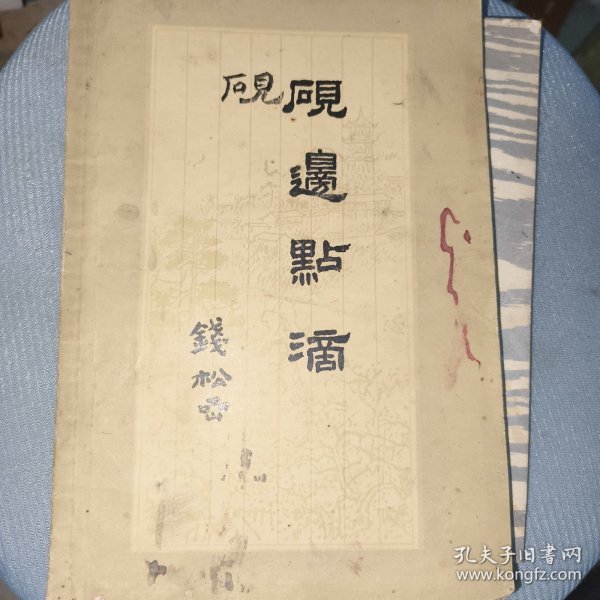 砚邊點滴
砚
錢松嵒
孔夫子旧书网
www.kongfz.com